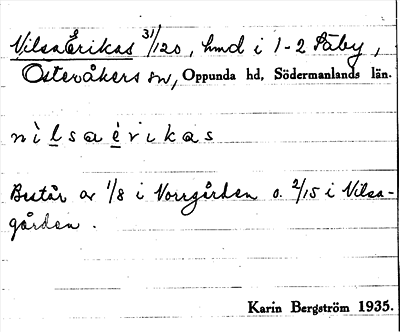 NilsaErikas 31/120, hmd i 1-2 Råby,
Österåkers sn, Oppunda hd, Södermanlands län.
nìl̠sa e̠̊rikas
Består av 1/8 i Norrgården o. 2/15 i Nilsa-
gården.
Karin Bergström 1935.